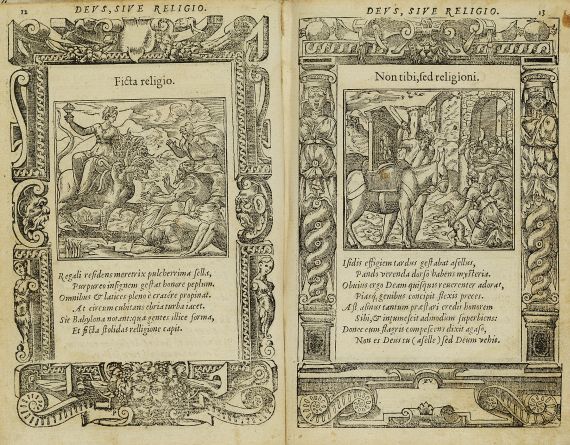 12 DEVS, SIVE RELIGIO.
Ficta religio.
Regali residens meretrix pulcherrima sella,
Purpureo insignem gestat honore peplum.
Omnibus & latices pleno è cratêre propinat.
At circum cubitans ebria turba iacet.
Sic Babylona notant: quæ gentes illice forma,
Et ficta stolidas relligione capit.
DEVS, SIVE RELIGIO. 13
Non tibi, sed religioni.
Isidis effigiem tardus gestabat asellus,
Pando verenda dorso habens mysteria.
Obuius ergo Deam quisquis reuerenter adorat,
Piasq́, genibus concipit flexis preces.
Ast asinus tantum præstari credit honorem
Sibi, & intumescit admodum superbiens:
Donec eum flagris compescens dixit agaso,
Non es Deus tu (aselle) sed Deum vehis.